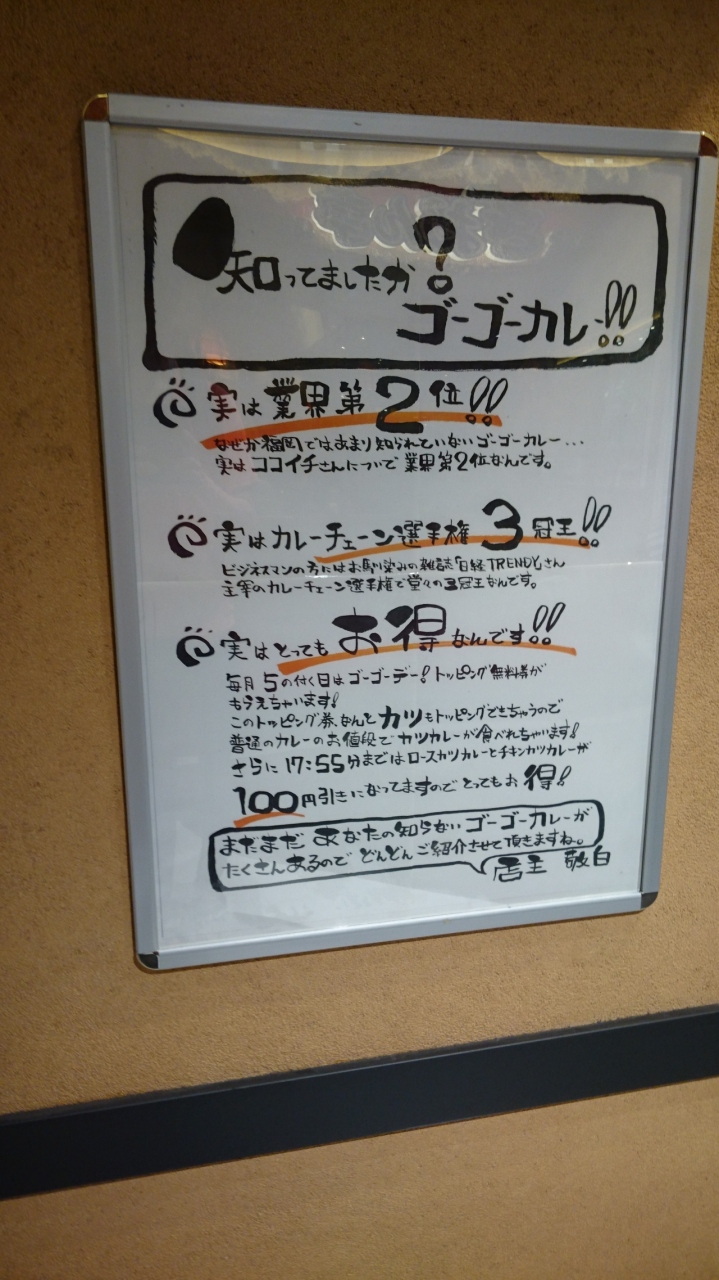 知ってましたか?
ゴーゴーカレー!!
実は業界第2位!!
なぜか福岡ではあまり知られていないゴーゴーカレー...
実はココイチさんについで業界第2位なんです。
実はカレーチェーン選手権3冠王!!
ビジネスマンの方にはお馴染みの雑誌「日経TRENDY」さん
主宰のカレーチェーン選手権で堂々の三冠王なんです。
実はとってもお得なんです!!
毎月5の付く日はゴーゴーデー!トッピング無料券が
もらえちゃいます!
このトッピング券なんとカツもトッピングできちゃうので
普通のカレーのお値段でカツカレーが食べれちゃいます!
さらに17:55分まではロースカツカレーとチキンカツカレーが
100円引きになってますのでとってもお得!
まだまだあなたの知らないゴーゴーカレーが
たくさんあるのでどんどんご紹介させて頂きますね。
店主 敬白